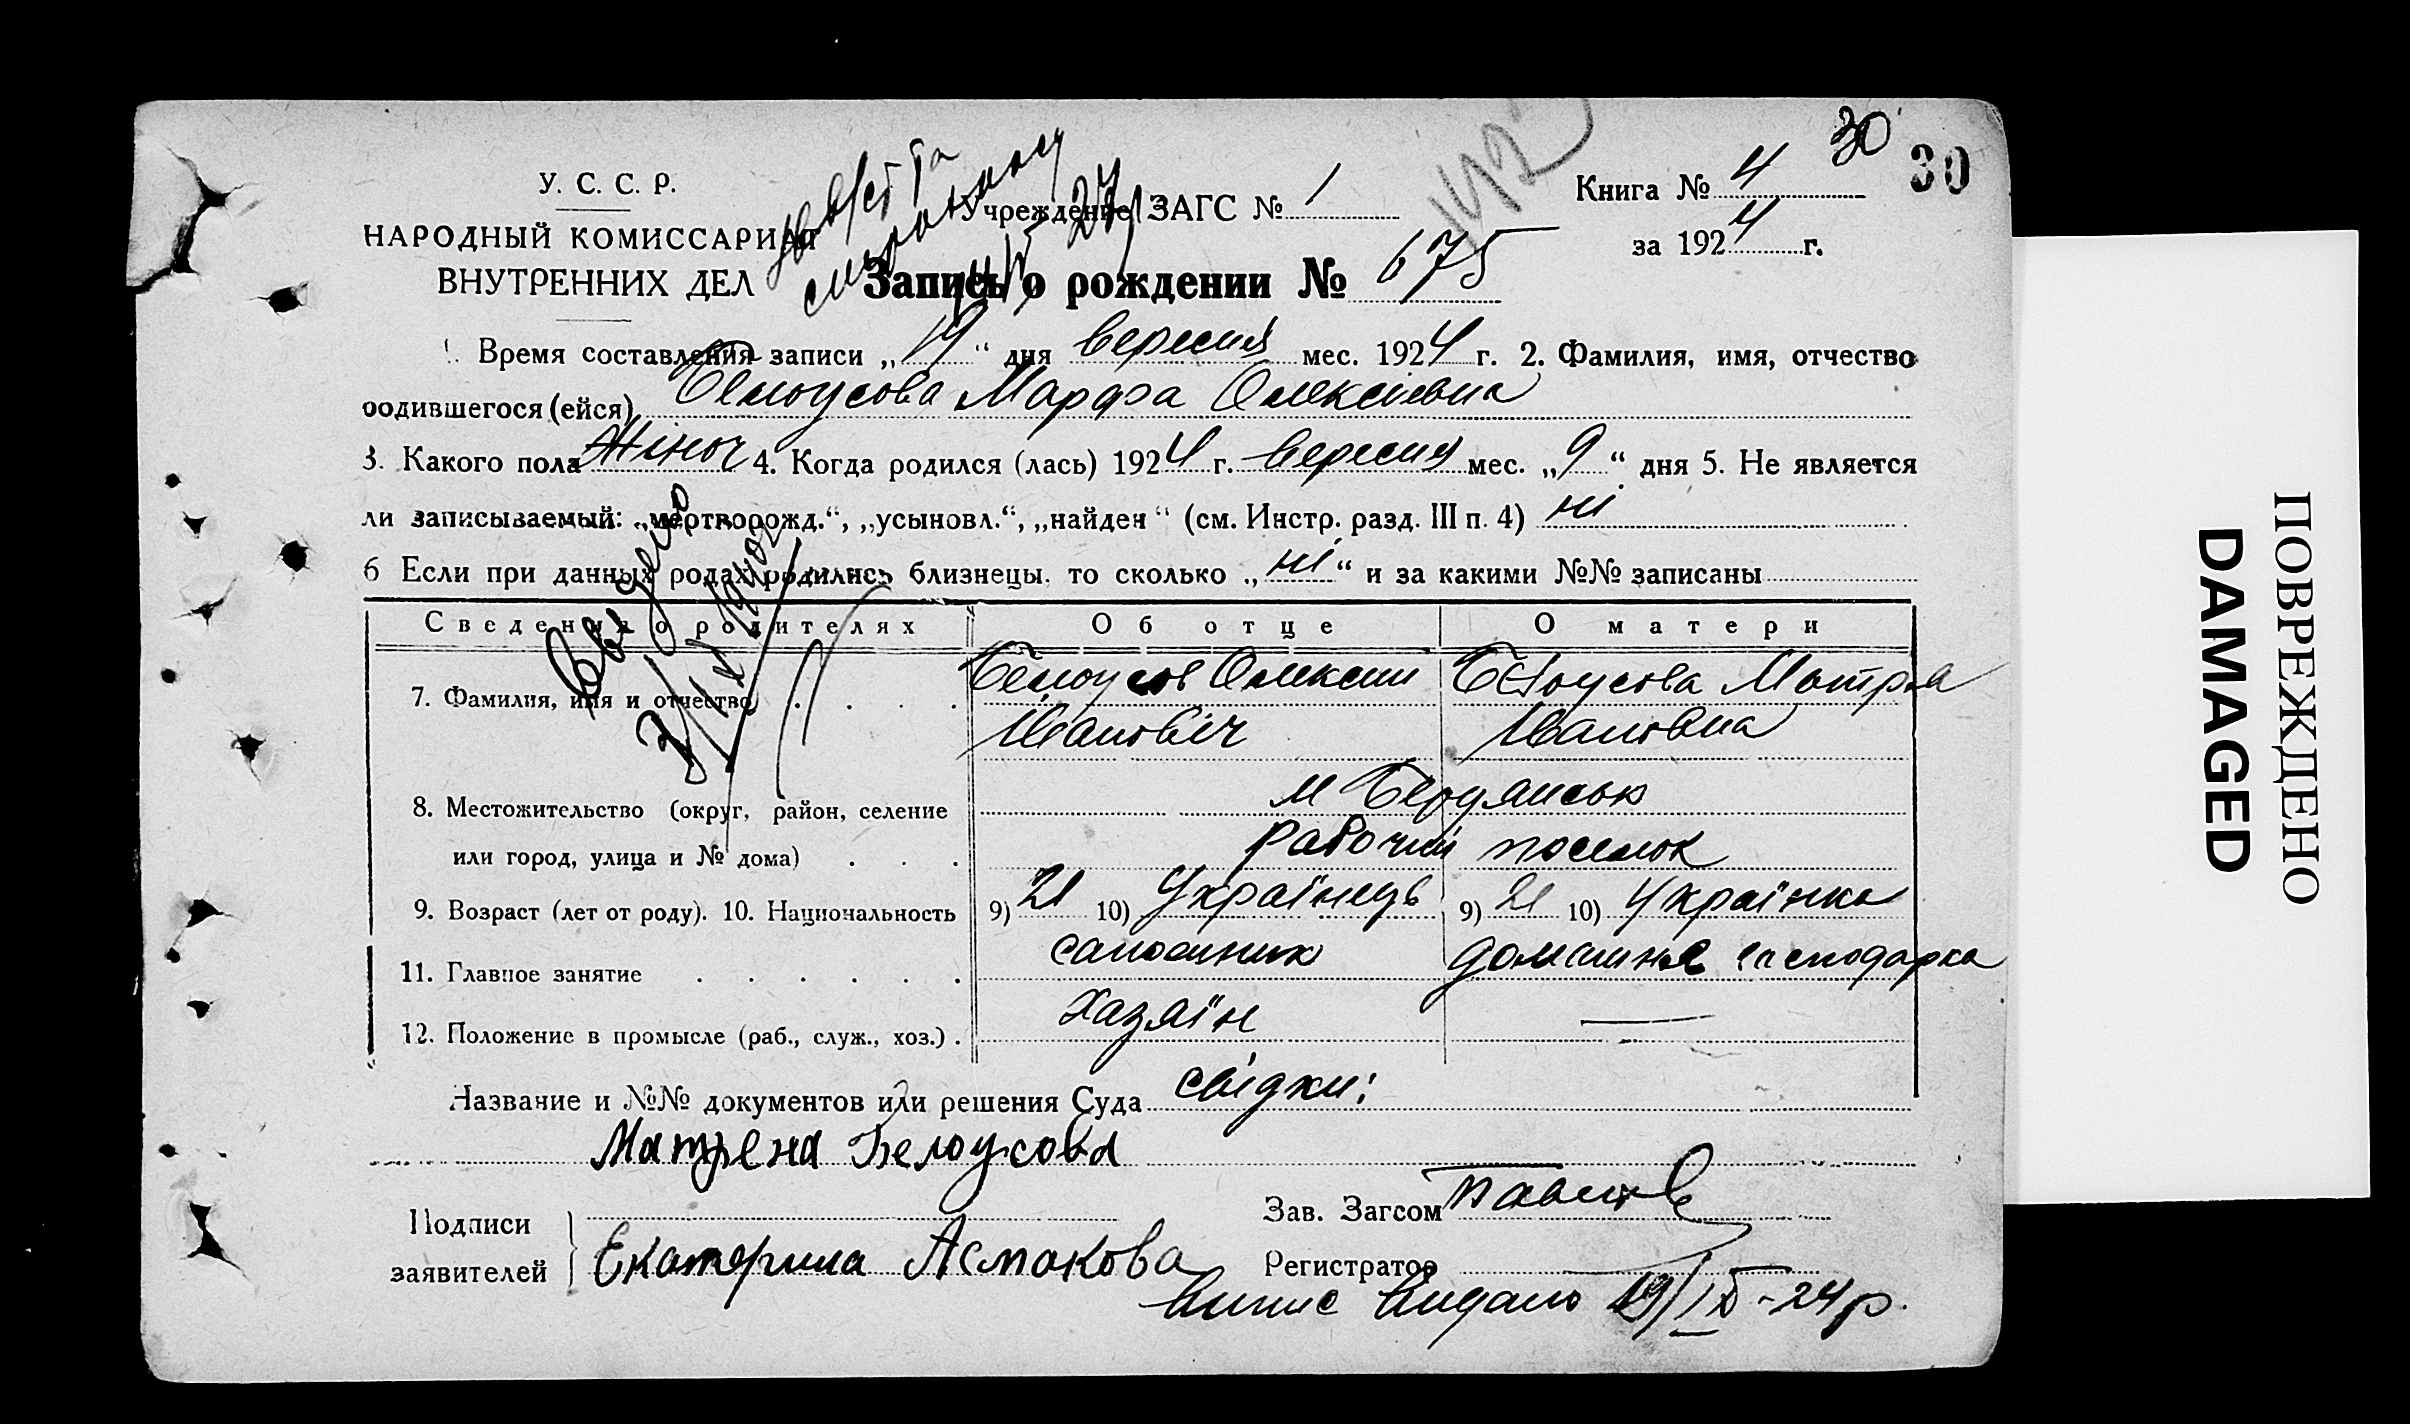 30
30
У. С. С. Р.
НАРОДНЫЙ КОМИССАРИАТ
ВНУТРЕННИХ ДЕЛ
Учреждение ЗАГС № 1
Книга № 4
за 1924 г.
Запись о рождении № 675
1. Время составления записи „19“ дня вересня мес. 1924 г. 2. Фамилия, имя, отчество
родившегося (ейся) Белоусова Марфа Олексієвна
3. Какого пола Жіноч 4. Когда родился (лась) 1924 г. вересня мес. „9“ дня 5. Не является
ли записываемый: „мертворожд.“, „усыновл.“, „найден“ (см. Инстр. разд. III п. 4) ні
6 Если при данных родах родились близнецы, то сколько „ні“ и за какими №№ записаны
Сведения о родителях Об отце О матери
7. Фамилия, имя и отчество Белоусов Олексии Белоусова Мотря
Іванович Івановна
8. Местожительство (округ, район, селение м Бердянськ
или город, улица и № дома) рабочий поселок
9. Возраст (лет от роду). 10. Национальность 9) 21 10) Українець 9) 21 10) Українка
11. Главное занятие сапожник домашня господарка
12. Положение в промысле (раб., служ., хоз.) хазяїн —
Название и №№ документов или решения Суда свідки:
Матрена Белоусова
Подписи
заявителей Екатерина Асмакова
Зав. Загсом
Регистратор
Випис видано 19/IX-24 р.
ПОВРЕЖДЕНО
DAMAGED